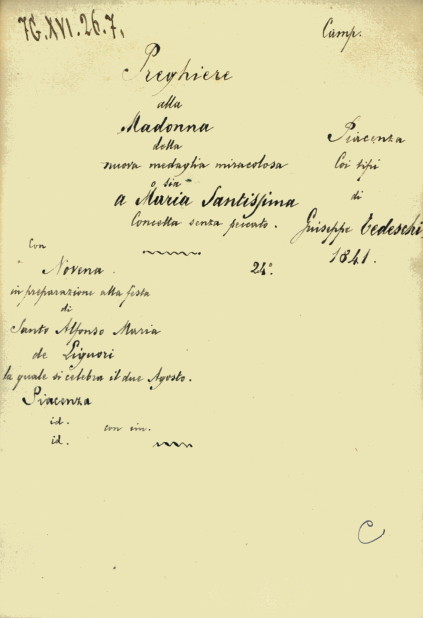 7G.XVI.26.7.
Camp.
Preghiere
alla
Madonna
della
nuova medaglia miracolosa
o sia
a Maria Santissima
Concetta senza peccato.
Piacenza
Coi tipi
di
Giuseppe Tedeschi
1841.
24°.
Con
Novena
in preparazione alla festa
di
Santo Alfonso Maria
de Liguori
la quale si celebra il due Agosto.
Piacenza
id. con im.
id.
C